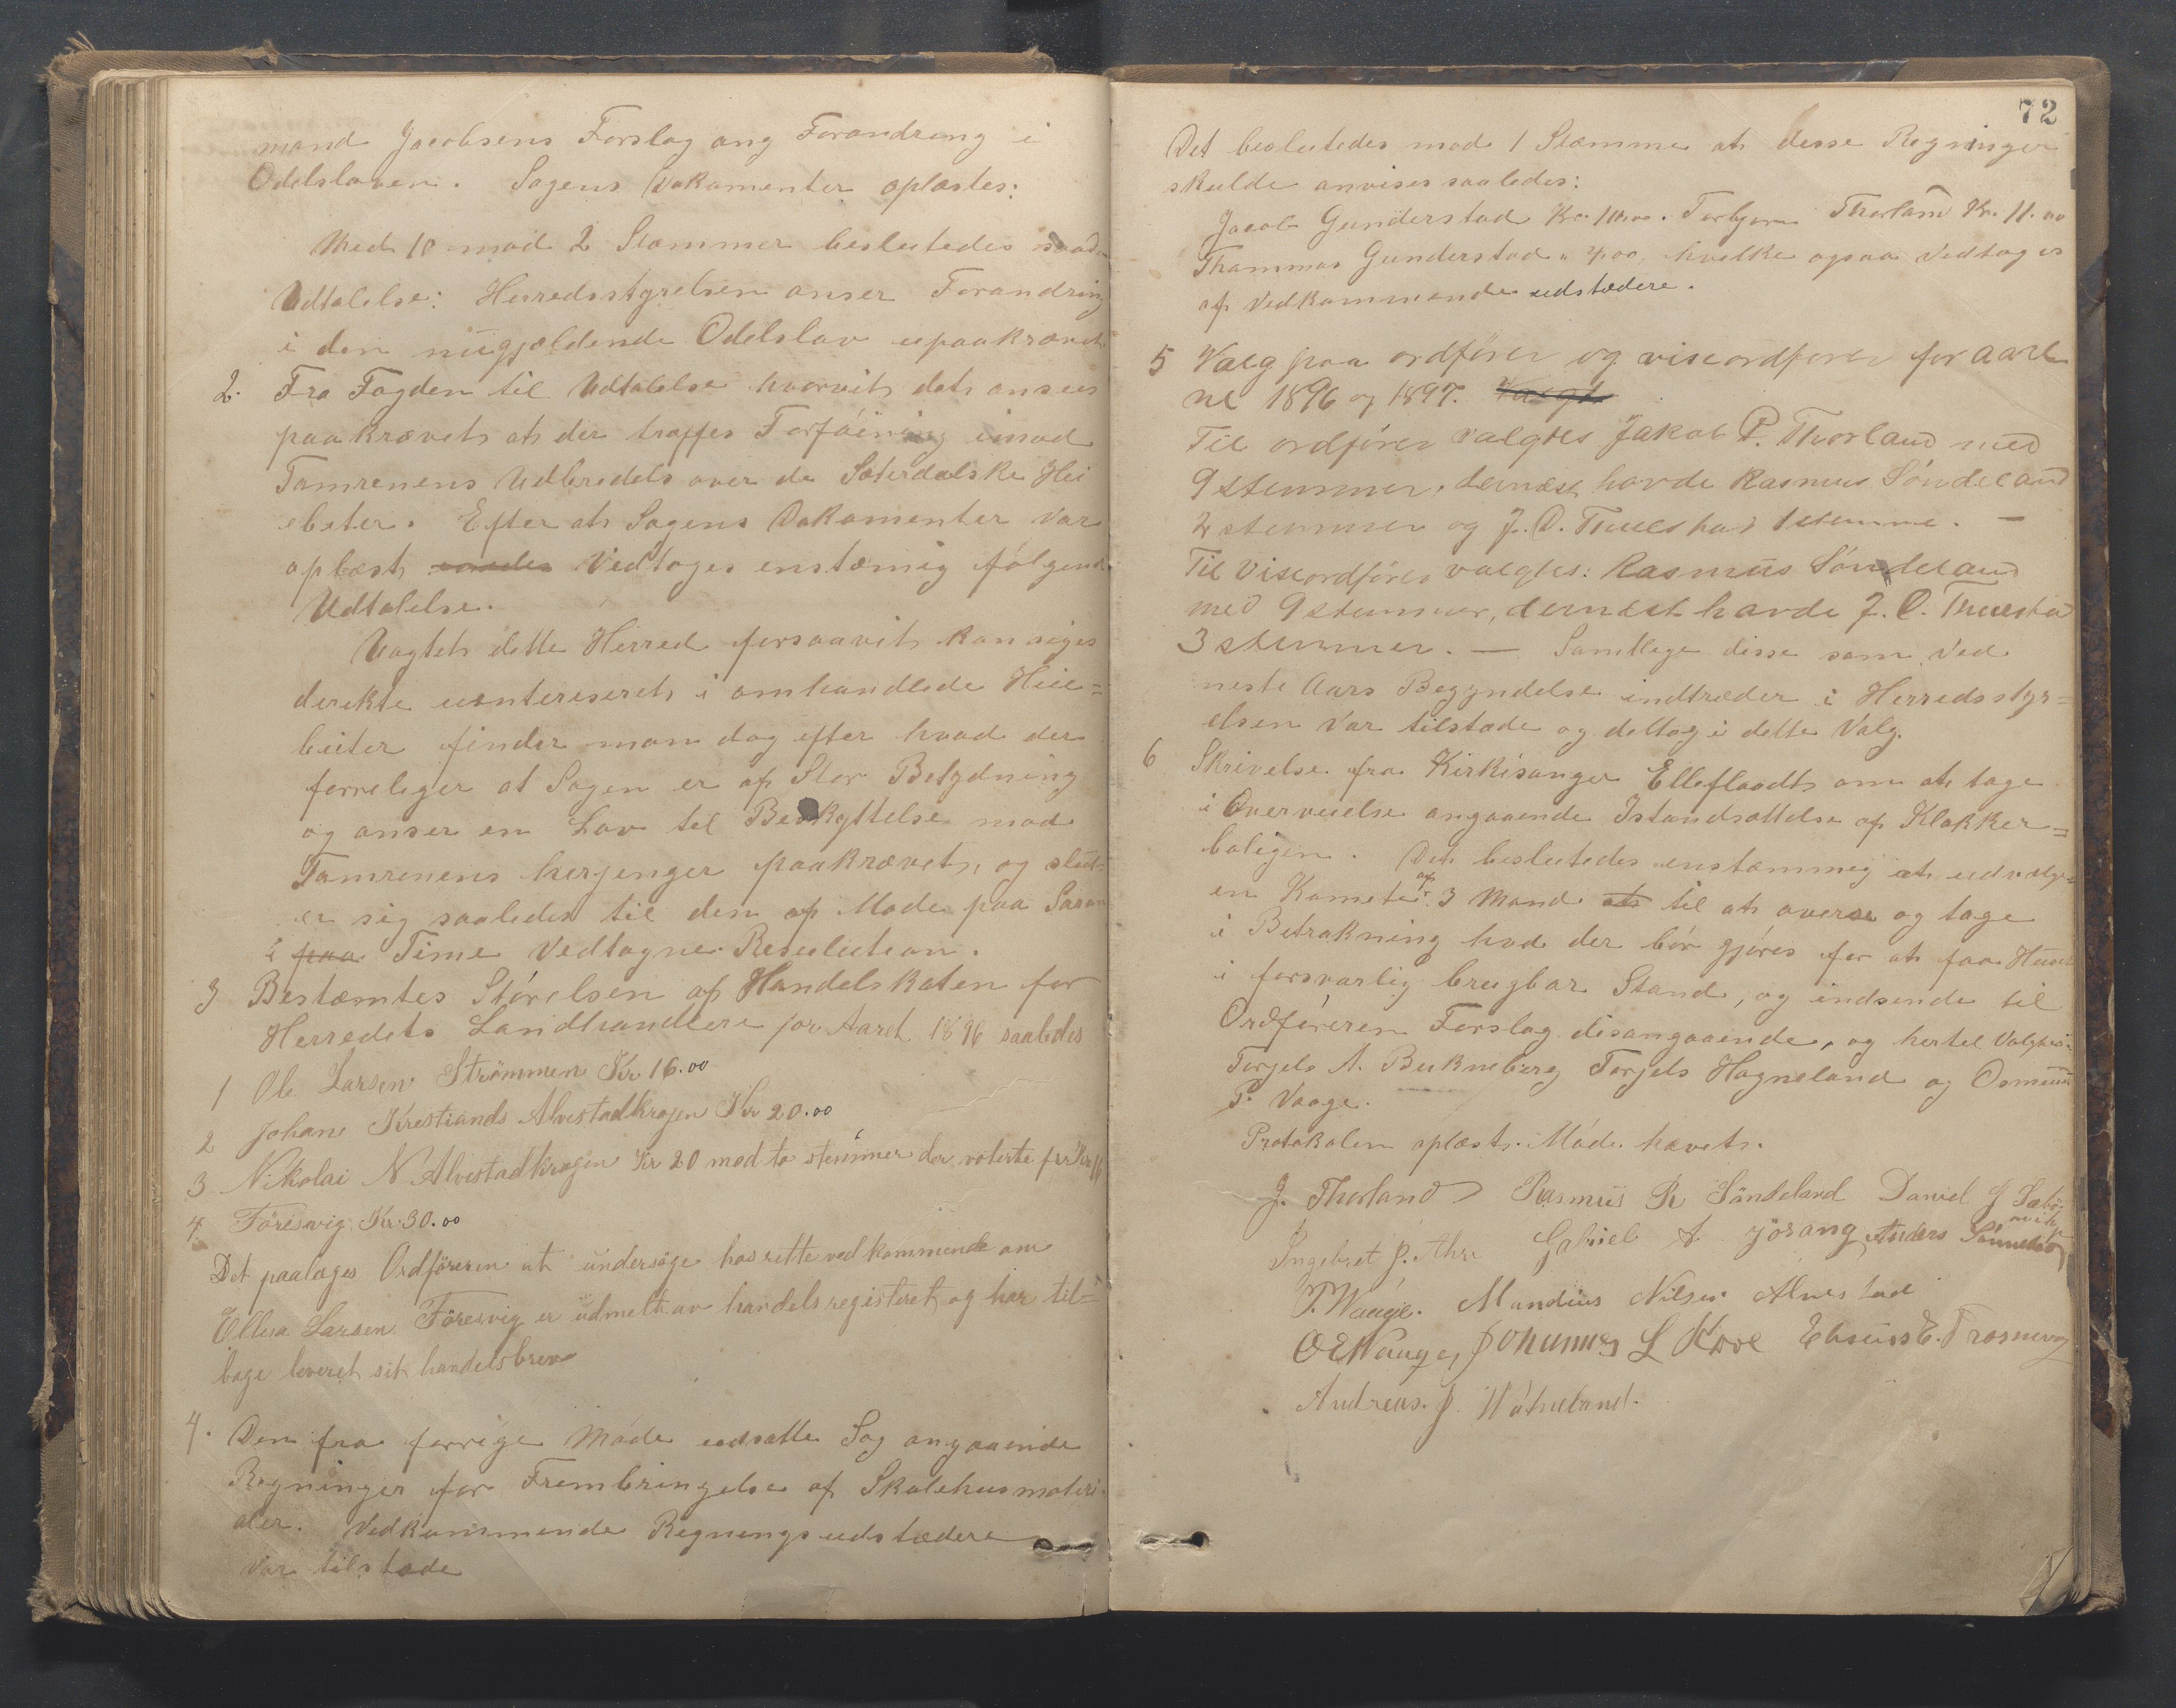 mand Jacobsens Forslag ang Forandreng i
Odelsloven. Sagens Dokomenter oplæstes:
Med 10 mod 2 Stæmmer besluttedes saad
Udtalelse: Herredsstyrelsen anser Forandring
i den nugjældende Odelslov upaakrævet
2. Fra Fogden til Udtalelse hvorvit det ansees
paakrævet at der træffes Forføining imod
Tamrenens Udbredels over de Sæterdalske Hei
ebeter. Efter at Sagens Dokomenter var
oplæst Vedtoges enstæmig følgende
Udtalelse.
Uagtet dette Herred forsaavit kan siges
derekte uentereseret i omhandlede Heie=
beiter finder man dog efter hvad der
forreliger at Sagen er af Stor Betydning
og anser en Lov til Beskyttelse mod
Tamrenens herjenger paakrævet, og slut=
er sig saaledes til den af Møde paa
i paa Time Vedtagne Resulution.
3 Bestæmtes Størelsen af Handelskaten for
Herredets Landhandlere for Aaret 1896 saaledes
1 Ole Larsen Strømmen Kr 16.00
2 Johan Krestiands Alvestadkrogen Kr 20.00
3 Nikolai N Alvestadkrogen Kr 20 mod to stemmer der voterte for Kr 16
4 Føresvig Kr 30.00
Det paalæges Ordføreren at undersøge hos rette vedkommende om
Ellisa Larsen Føresvig er udmelt av handelsregisteret og har til=
bage leveret sit handelsbrev
4. Den fra forrige Møde udsatte Sag angaaende
Regninger for Frembringelse af Skolehusmateri
aler. Vedkommende Regningsudstædere
var tilstæde
72
Det besluttedes mod 1 Stæmme at desse Regninger
skulde anvises saaledes:
Jacob Gunderstad Kr. Torbjørn Thorland Kr. 11.00
Thammas Gunderstad " 4,00, hvilke ogsaa Vedtoges
af Vedkommende udstædere.
5 Valg paa ordfører og viseordfører for aare
ne 1896 og 1897. Valgt
Til ordfører valgtes Jakob P. Thorland med
9 stemmer, dernæst havde Rasmus Søndeland
2 stemmer og J. O. Tuestad 1 stemme. —
Til Viseordføres valgtes: Rasmus Søndeland
med 9 stemmer, dernæst havde J. O. Tuestad
3 stemmer. — Samtlege disse som Ved
neste Aars Begyndelse indtræder i Herredsstyr=
elsen Var tilstæde og deltog i dette Valg.
6 Skrivelse fra Kirkisanger Elleflaadt om at tage
i Overveielse angaaende Istandsættelse af Klokker=
boligen. Det besluttedes enstæmmig at udvælge
en Kometee af 3 Mand at til at overse og tage
i Betrakning hvad der bør gjøres for at faa Huset
i forsvarlig brugbar Stand, og indsende til
Ordføreren Forslag disangaaende, og hertil Valgtes:
Torgels A. Bukneberg Torgels Hogneland og Osmund
P. Vaage.
Protokolen oplæst. Møde hævet.
J. Thorland Rasmus R Søndeland Daniel J Sæbø
Ingebret J. Gabriel A Jøsang Anders
P. Waage. Mandius Nilsen Alvestad
O E Waage, Johannes L Elisæus E.
Andreas. J.